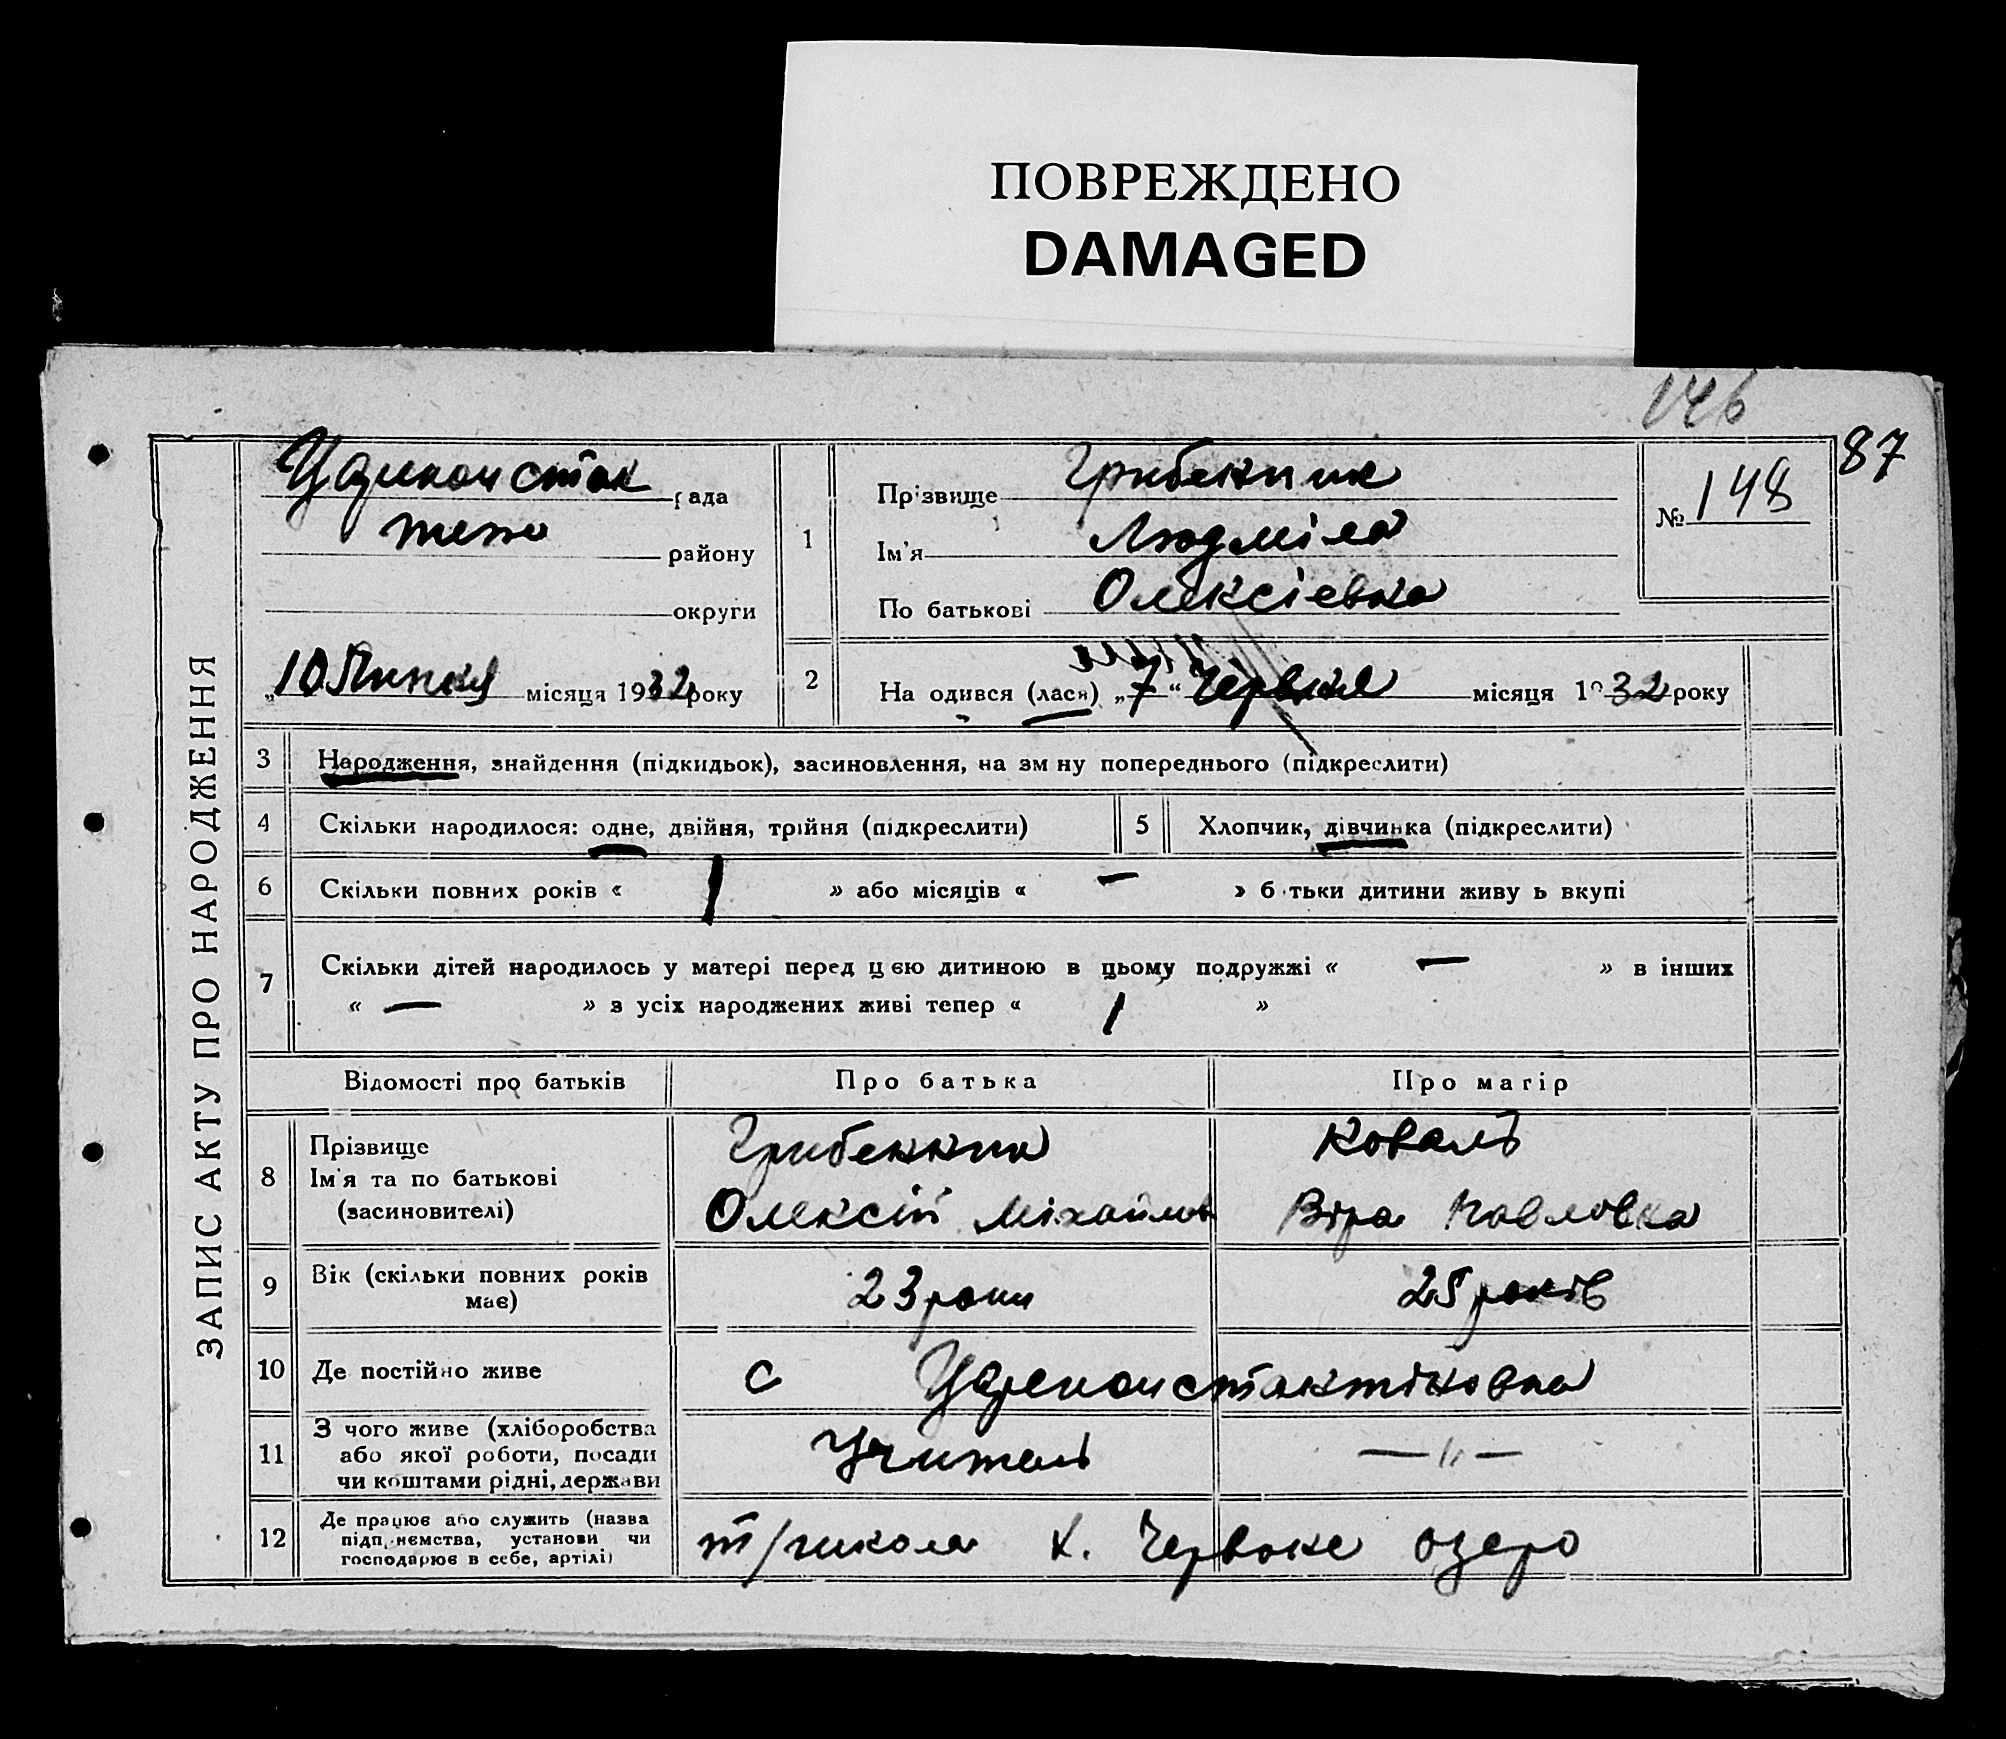 ПОВРЕЖДЕНО
DAMAGED
146
87
ЗАПИС АКТУ ПРО НАРОДЖЕННЯ
Цареконстак рада
району
округи
„10 Липня місяця 1932 року
1
Прізвище Грибенник
Ім'я Людміла
По батькові Олексієвна
№ 148
2
На одився (лася) „7“ Червня місяця 1932 року
3 Народження, знайдення (підкидьок), засиновлення, на зм ну попереднього (підкреслити)
4 Скільки народилося: одне, двійня, трійня (підкреслити) 5 Хлопчик, дівчинка (підкреслити)
6 Скільки повних років « 1 » або місяців « — » б тьки дитини живу ь вкупі
7 Скільки дітей народилось у матері перед цією дитиною в цьому подружжі « — » в інших
« — » з усіх народжених живі тепер « 1 »
Відомості про батьків Про батька Про матір
8 Прізвище Грибенник Коваль
Ім'я та по батькові
(засиновителі) Олексій Міхайлов Віра Павловна
9 Вік (скільки повних років має) 23 роки 25 років
10 Де постійно живе с Цареконстактіновка
11 З чого живе (хліборобства
або якої роботи, посади
чи коштами рідні, держави Учитель — " —
12 Де працює або служить (назва
підп.иємства, установи чи
господарює в себе, артілі) т/школа х. Червоне озеро